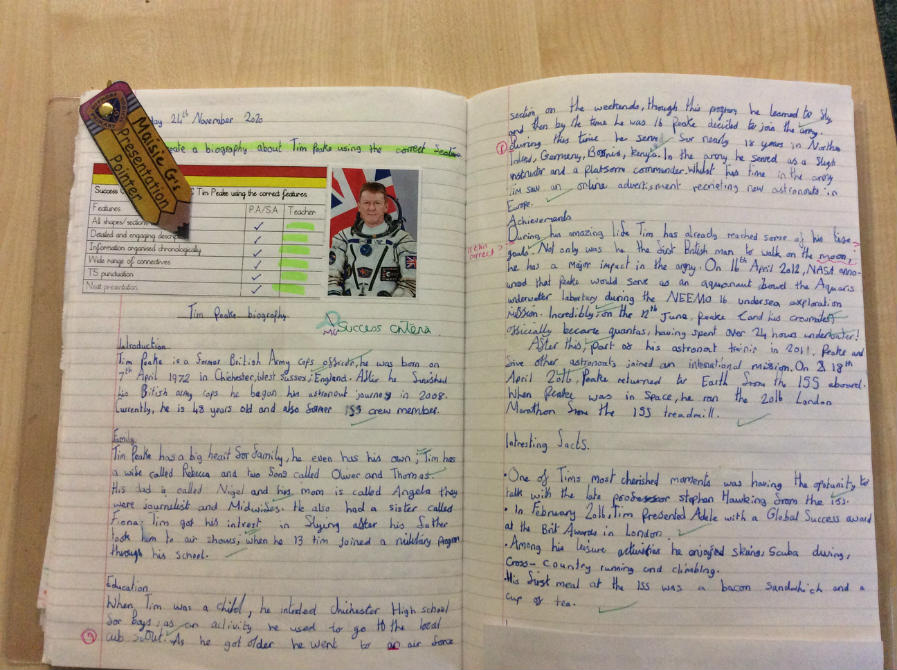 Maisie G's
Presentation
Pointer
ay 24th November 2020
eate a biography about Tim Peake using the correct
Success of Tim Peake using the correct features
Features P.A/S.A Teacher
All shapes/sections
Detailed and engaging descrip
Information organised chronologically
Wide range of connectives
TS punctuation
Neat presentation
Tim Peake biography
Success criteria
Introduction
Tim Peake is a former British Army cops officer, he was born on
7th April 1972 in Chichester, West Sussex, England. After he finished
his British army cops he began his astronaut journey in 2008.
Currently, he is 48 years old and also former ISS crew member.
Family
Tim Peake has a big heart for family, he even has his own; Tim has
a wife called Rebecca and two sons called Oliver and Thomas.
His dad is called Nigel and his mom is called Angela they
were journalist and Midwives. He also had a sister called
Fiona; Tim got his intrest in flying after his father
took him to air shows; when he 13 tim joined a military program
through his school.
Education
When Tim was a child, he Chichester High school
for boys; as an activity he used to go to the local
cub scout. As he got older he went to an air force
section on the weekends, through this program he learned to fly
and then by the time he was 16 Peake decided to join the army.
During this time he serve for nearly 18 years in Northen
Germany, Bosnia, Kenya. In the army he served as a fligh
instructor and a platform commander. Whilst his time in the army
tim saw an online advertisment new astronauts in
Europe.
Achievements
During his amazing life Tim has already reached some of his
goals. Not only was he the first British man to walk on the moon,
he has a major impact in the army. On 16th April 2012, NASA anno-
unced that Peake would serve as an aquanaut aboard the Aquaris
underwater labortary during the NEEMO 16 undersea exploration
mission. Incredibly, on the 12th June, Peake (and his crewmates)
officially became quantas, having spent over 24 hours underwater!
After this, part of his astronot in 2011. Peake and
five other astronauts joined an international mission. On 18th
April 2016, Peake returned to Earth from the ISS aboard.
When Peake was in space, he ran the 2016 London
Marathon from the ISS treadmill.
Intresting facts.
• One of Tims most cherished moments was having the oputunity to
talk with the late professor stephan Hawking from the iss.
• In February 2016, Tim presented Adele with a Global Success award
at the Brit Awards in London.
• Among his leisure activities he enjoyed skiing, Scuba diving,
Cross-country running and climbing.
• His first meal at the ISS was a bacon sandwhich and a
cup of tea.